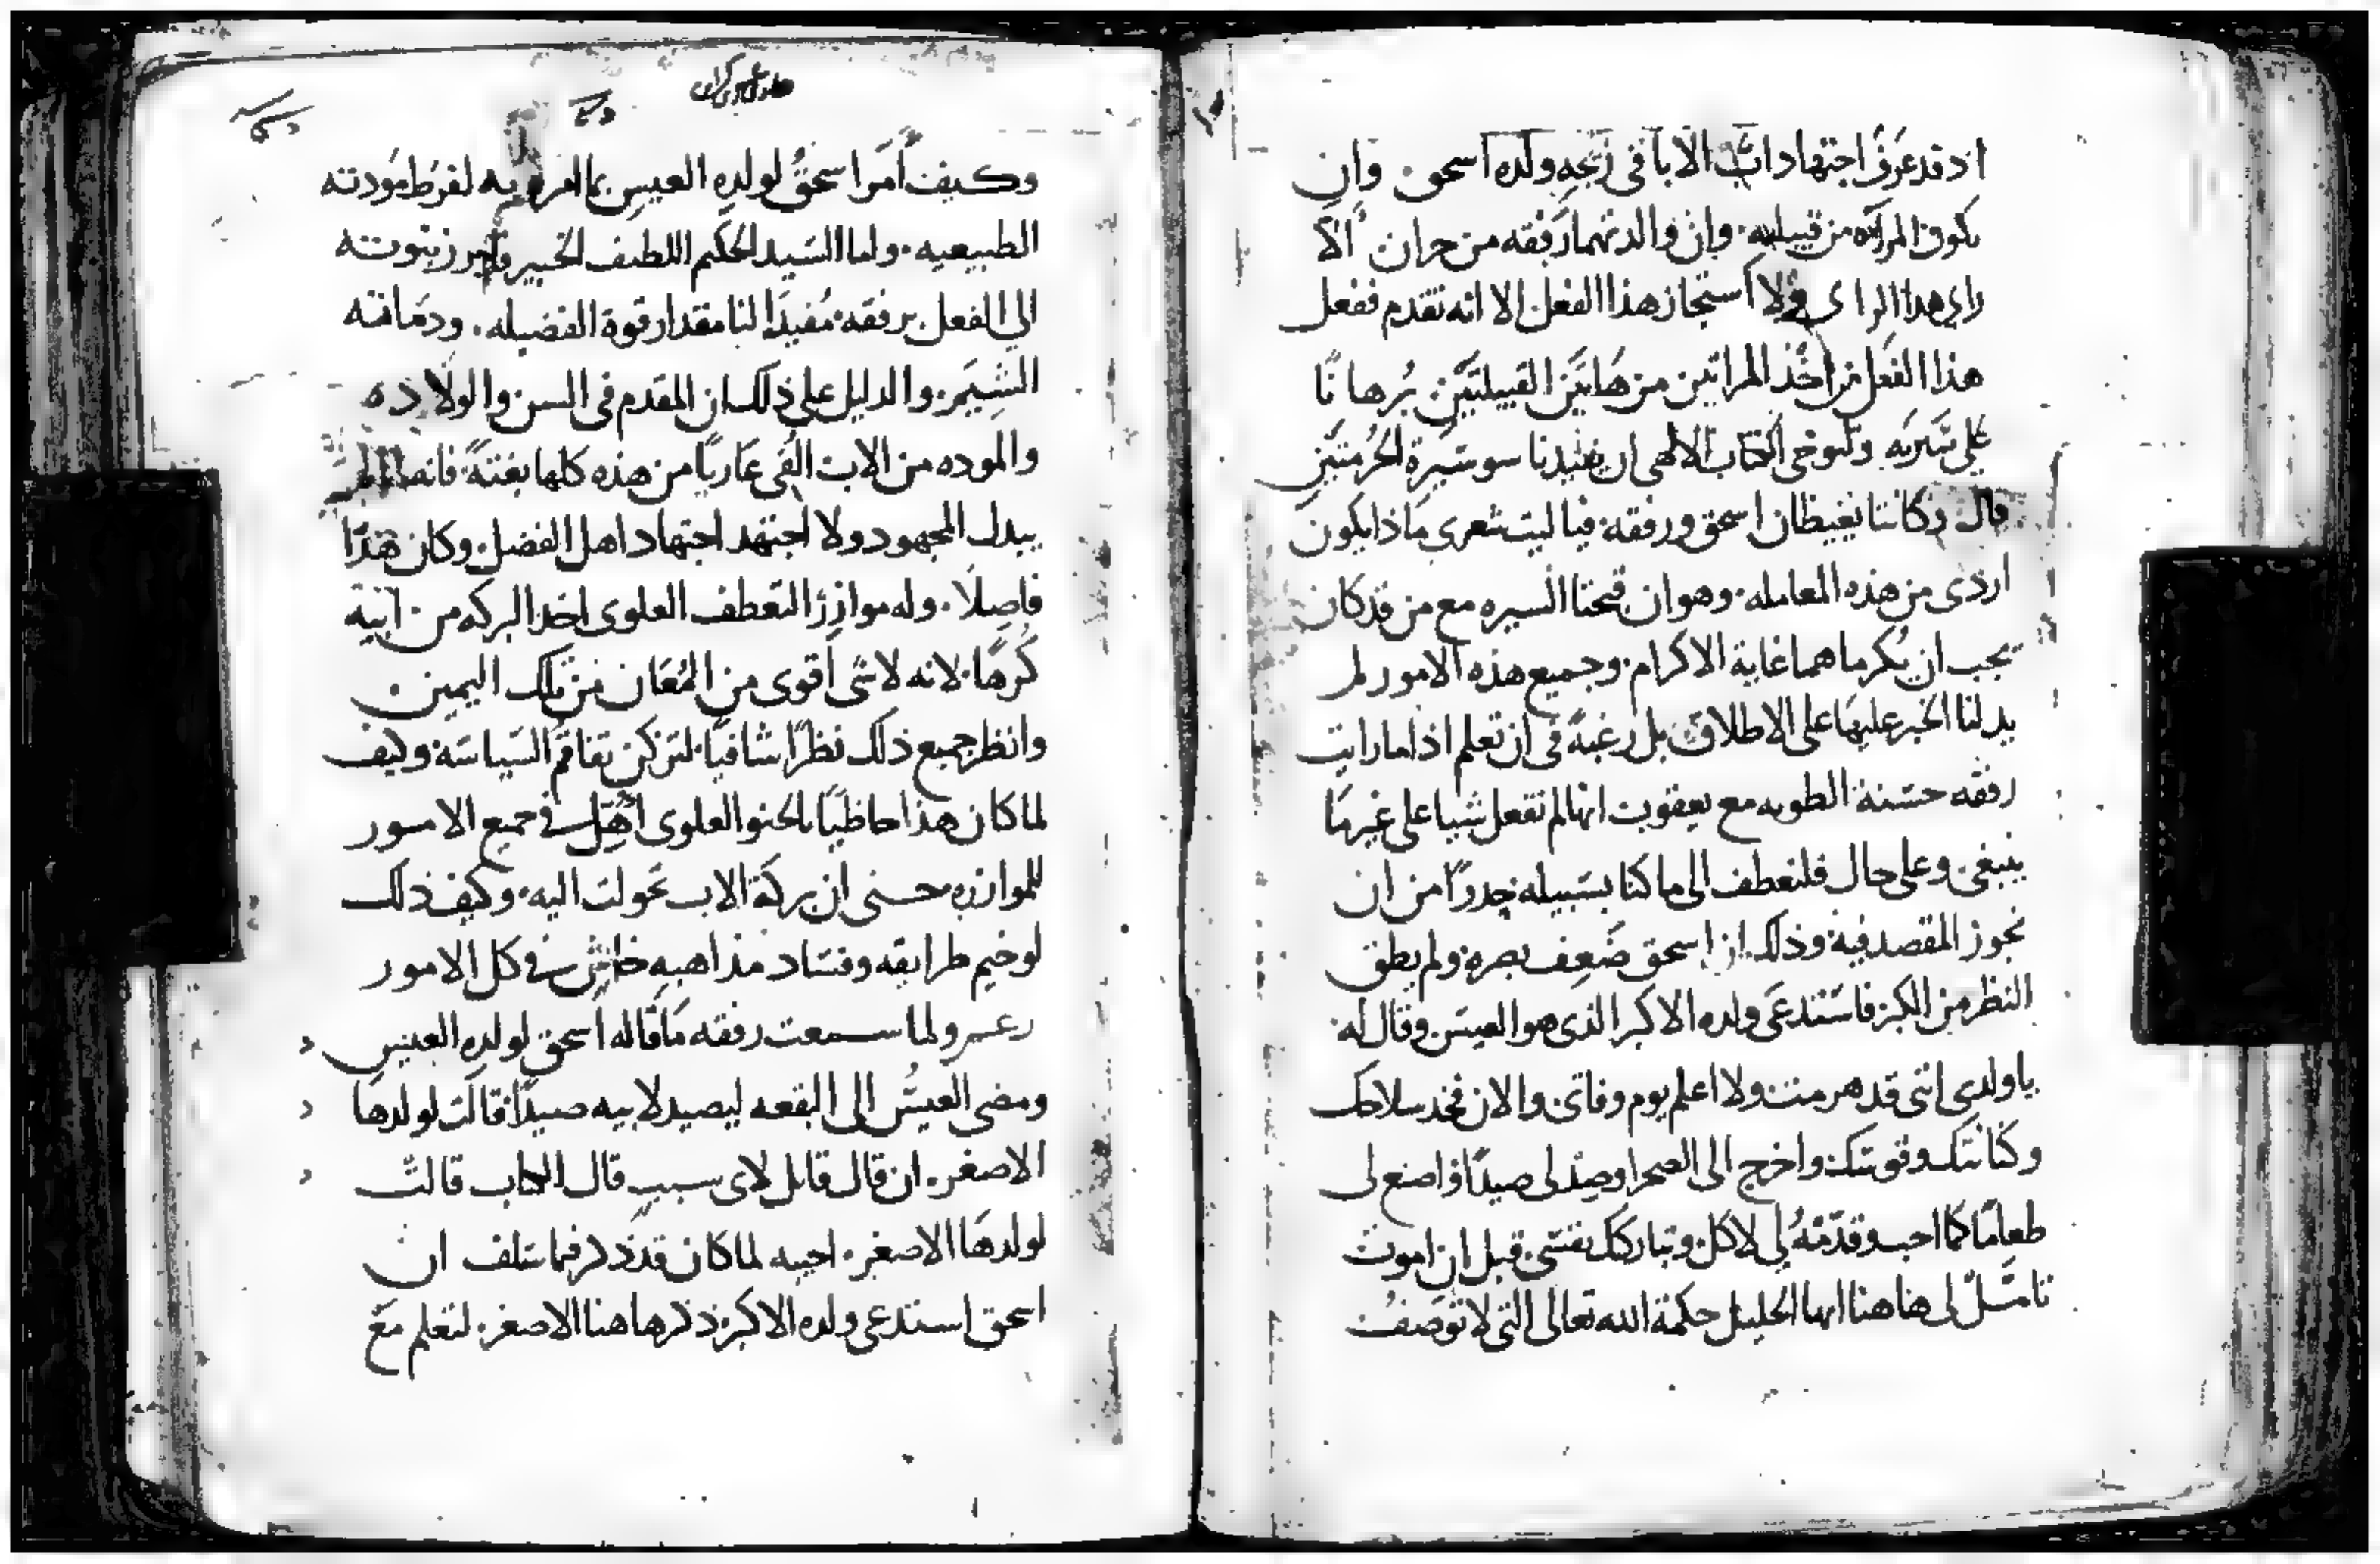 اد قد عَرَفَ اجتهاد اب الابا في زيجه ولده اسحق وان
تكون المراه من قبيلته. وان والدتهما رفقه من حران الا
راي هدا الراي ولا استجاز هذا الفعل الا انه تقدم ففعل
هذا الفعل من اخذ المراتين من هاتَين القبيلتَين بُرهانًا
علي شريته ولتوخي الكتاب الالهي ان يفيدنا سو سَيرة الحُرمتَين
قال وكانتا يغيظان اسحق ورفقه. فيا ليت شعري مَاذا يكون
اردي من هذه المعامله. وهو ان قبحتا السيره مع من قد كان
يجب ان يُكرماهما غاية الاكرام. وجميع هذه الامور لم
يدلنا الخبر عليهَا على الاطلاق بل رغبةً في ان تعلم اذا ما رايت
رفقه حسَنة الطويه مع يعقوب انها لم تفعل شيا على غير مَا
ينبغي وعلي حال فلنعطف الى ما كنا بسَبيله حدرًا من ان
نجوز المقصد فيه. وذلك ان اسحق ضَعِف بصره ولم يطق
النظر من الكبر فاسَتدعَي ولده الاكبر الذي هو العيسَ وقال له.
يا ولدي انني قد هرمت ولا اعلم يوم وفاتي والان فخد سلاحك
وكنانتك وقوسَك واخرج الى الصحرا وصِد لي صيدًا واصنع لي
طعامًا كما احب وقدّمهُ لي لاكل وتباركك نفسَي قبل ان اموت
تامَّل لي هاهنا ايها الخليل حكمة الله تعالى التي لا توصَف
وكيف أمر اسحقُ لولده العيس بما امره به لفرط مَودته
الطبيعيه. واما السَيد الحكيم اللطيف الخبير
الي الفعل برفقه. مُفيدًا لنا مقدار قوة الفضيله. ودمَاثة
الشِيَم. والدليل علي ذلك ان المقدم في السن والولاده
والموده من الاب الُفي عَاريًا من هذه كلها بغتةً. فانه لم
يبدل المجهود ولا اجتهد اجتهاد اهل الفضل. وكان هَذا
فاصِلًا. وله موازِرُ التعطف العلوي اخد البركه من ابيه
كُرهًا. لانه لا شي اَقوى من المُعَان من تلك اليمين.
وانظر جميع ذلك نظرًا شافيًا. لتزكن تفاقُم السَياسَة وكيف
لما كان هذا حاظيًا بالحنو العلوي اُهِّل في جميع الامور
للموازره حسنى ان بركة الاب تحَولت اليه. وكيف ذلك
لوخيم طرايقه وفسَاد مذاهبه خاس في كل الامور
زعم ولما سمعت رفقه مَا قاله اسحق لولدِه العيس
ومضي العيسُ الى البقعه ليصيد لابيه صيدًا قالت لولدها
الاصغر. ان قال قايل لاي سبب قال الكتاب قالت
لولدهَا الاصغر. اجيبه لما كان قد ذكر فيما سَلف ان
اسحق استدعي ولده الاكبر ذكرها هنا الاصغر. لتعلم مَع